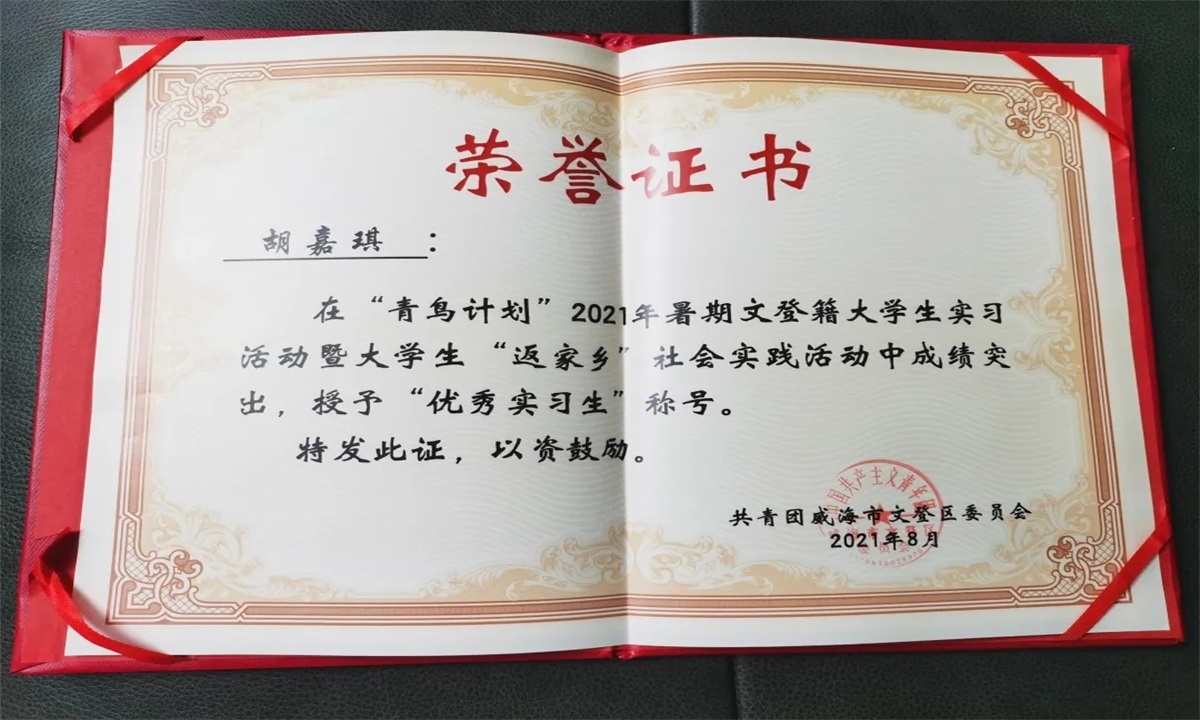 荣誉证书
胡嘉琪：
在“青鸟计划”2021年暑期文登籍大学生实习
活动暨大学生“返家乡”社会实践活动中成绩突
出，授予“优秀实习生”称号。
特发此证，以资鼓励。
中国共产主义青年团
共青团威海市文登区委员会
2021年8月